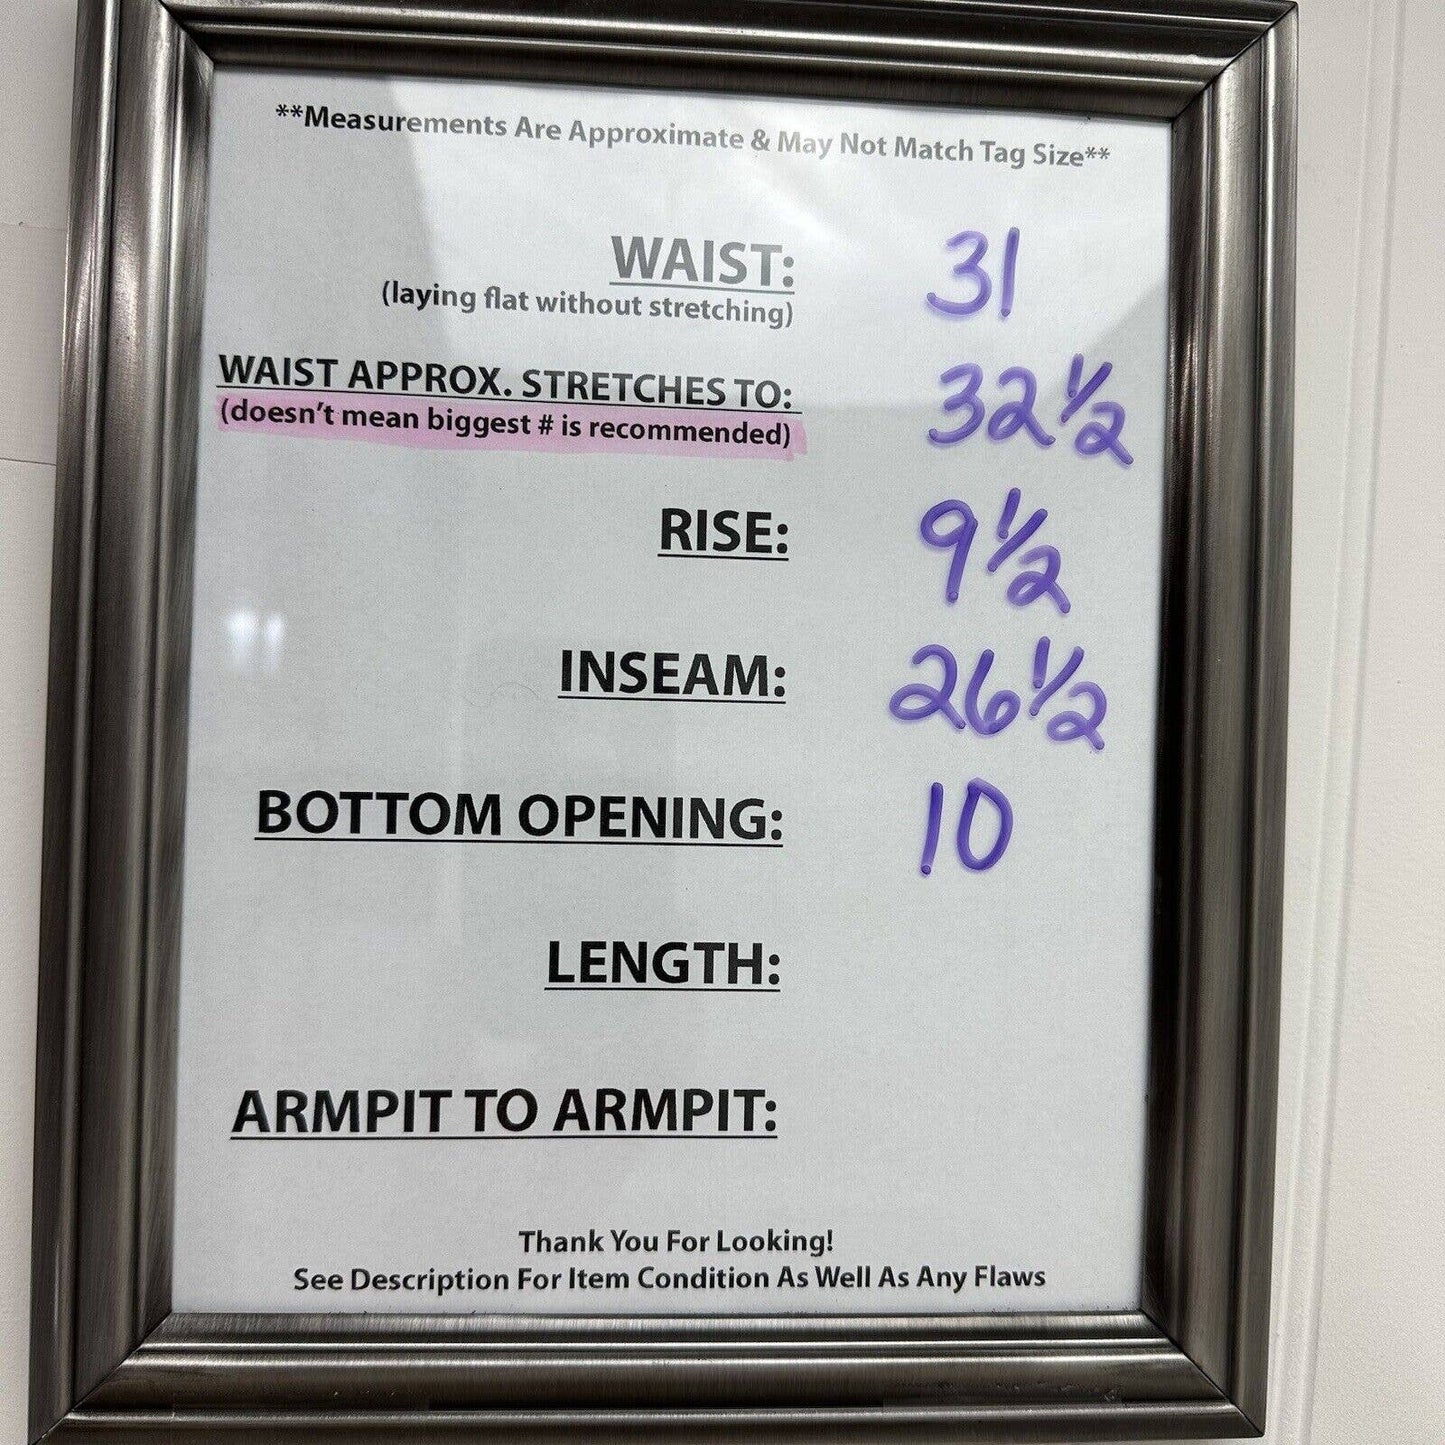 **Measurements Are Approximate & May Not Match Tag Size**
WAIST: 31
(laying flat without stretching)
WAIST APPROX. STRETCHES TO: 32 1/2
(doesn't mean biggest # is recommended)
RISE: 9 1/2
INSEAM: 26 1/2
BOTTOM OPENING: 10
LENGTH:
ARMPIT TO ARMPIT:
Thank You For Looking!
See Description For Item Condition As Well As Any Flaws